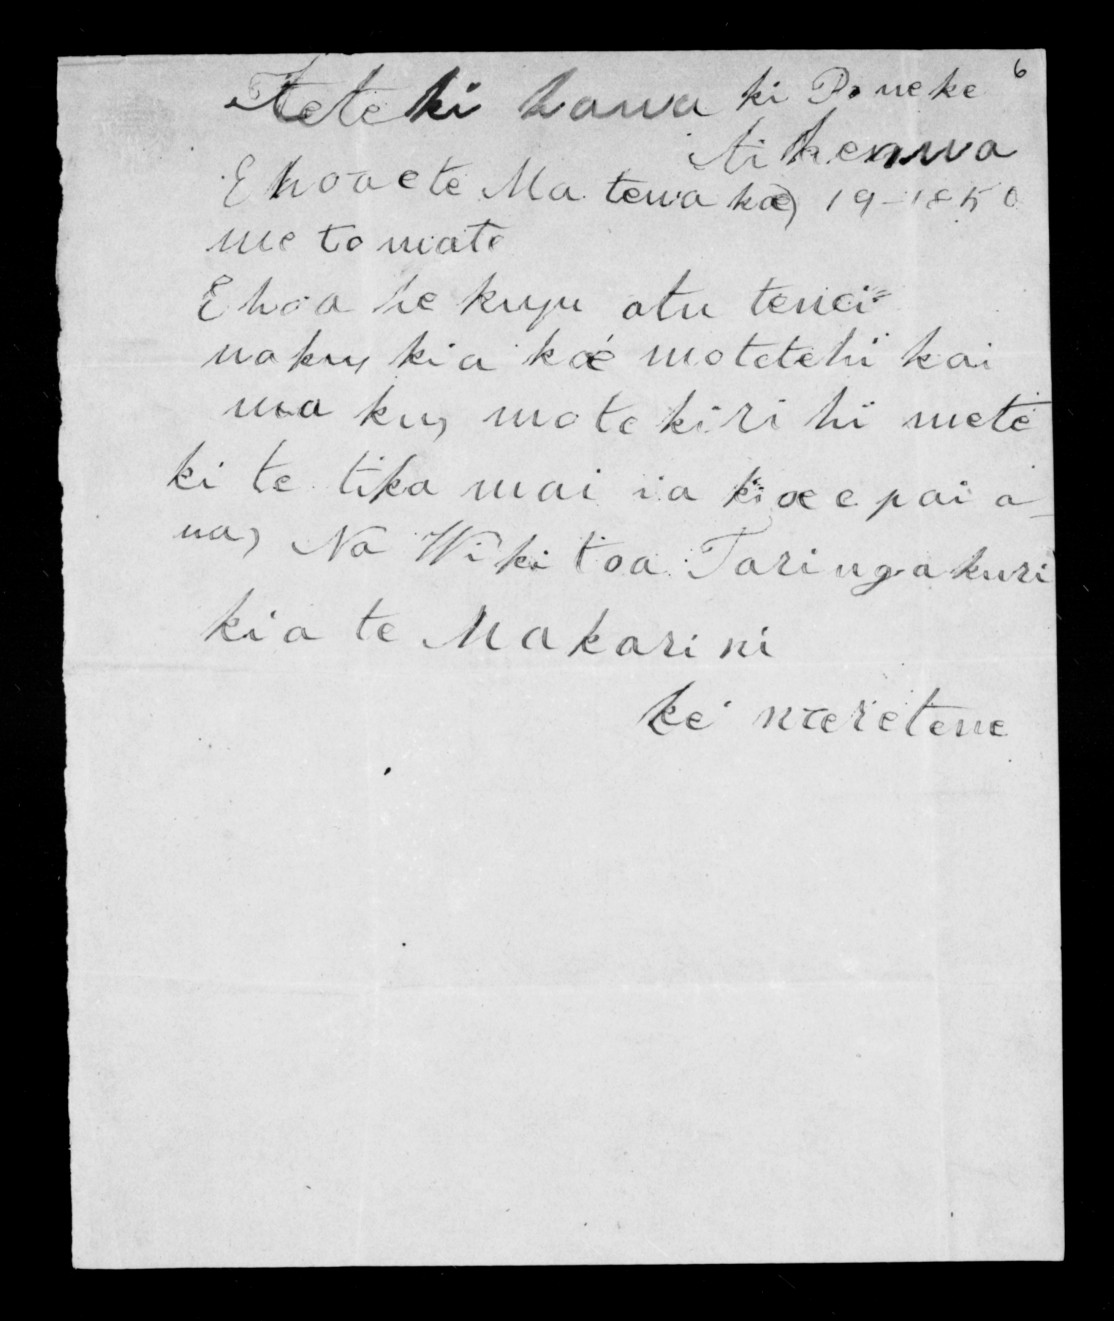 6
Teteki hawa ki Poneke
E hoa e te Ma tena koe, 19-1850
me to mate
E hoa he kupu atu tenei=
naku, kia koe motetehi kai
ma ku, mo te kiri hi mete
ki te tika mai ia koe e pai a-
na, Na Wiki toa Taringakuri
kia te Makarini